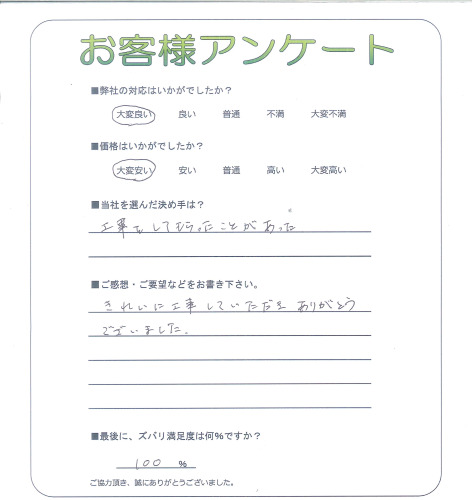 お客様アンケート
■弊社の対応はいかがでしたか？
大変良い 良い 普通 不満 大変不満
■価格はいかがでしたか？
大変安い 安い 普通 高い 大変高い
■当社を選んだ決め手は？
工事をしてもらったことがあった
■ご感想・ご要望などをお書き下さい。
きれいに工事していただき ありがとう
ございました.
■最後に、ズバリ満足度は何%ですか？
100 %
ご協力頂き、誠にありがとうございました。